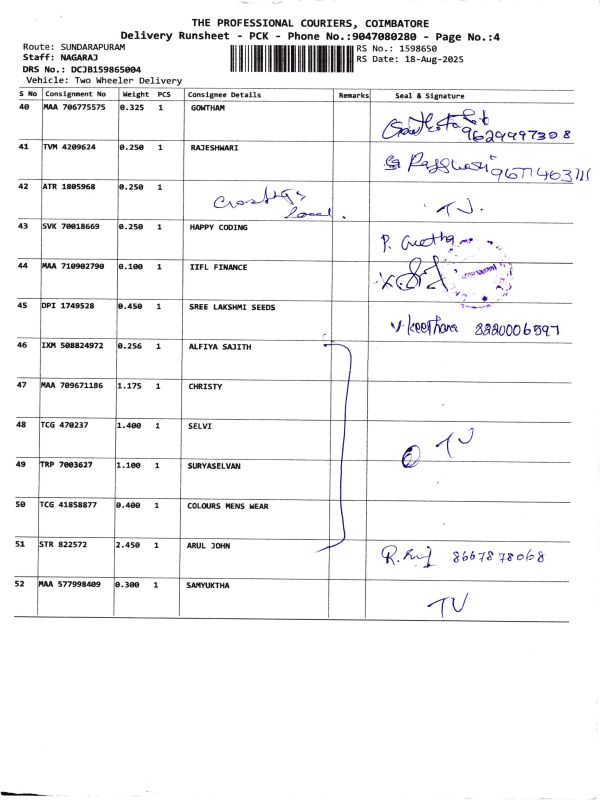 THE PROFESSIONAL COURIERS, COIMBATORE
Delivery Runsheet - PCK - Phone No.:9047080280 - Page No.:4
Route: SUNDARAPURAM
Staff: NAGARAJ
DRS No.: DCJB159865004
Vehicle: Two Wheeler Delivery
RS No.: 1598650
RS Date: 18-Aug-2025
S No Consignment No Weight PCS Consignee Details Remarks Seal & Signature
40 MAA 706775575 0.325 1 GOWTHAM 9629997308
41 TVM 4209624 0.250 1 RAJESHWARI
42 ATR 1805968 0.250 1 TJ.
43 SVK 70018669 0.250 1 HAPPY CODING P. Geetha
44 MAA 710902790 0.100 1 IIFL FINANCE
45 DPI 1749528 0.450 1 SREE LAKSHMI SEEDS V. Keerthana 8220006597
46 IXM 508824972 0.256 1 ALFIYA SAJITH
47 MAA 709671186 1.175 1 CHRISTY
48 TCG 470237 1.400 1 SELVI TJ
49 TRP 7003627 1.100 1 SURYASELVAN
50 TCG 41858877 0.400 1 COLOURS MENS WEAR
51 STR 822572 2.450 1 ARUL JOHN 8667878068
52 MAA 577998409 0.300 1 SAMYUKTHA TV